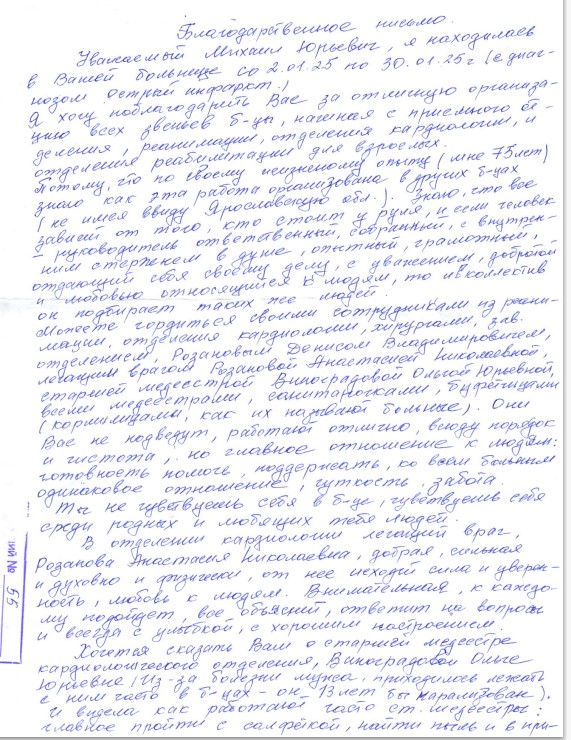 Благодарственное письмо.
Уважаемый Михаил Юрьевич, я находилась
в Вашей больнице со 2.01.25 по 30.01.25г (с диаг-
нозом острый инфаркт.)
Я хочу поблагодарить Вас за отличную организа-
цию всех звеньев б-цы, начиная с приемного от-
деления, реанимации, отделения кардиологии, и
отделения реабилитации для взрослых.
Потому, что по своему жизненому опыту (мне 75 лет)
знаю как эта работа организована в других б-цах
(не имея ввиду Ярославскую обл.). Знаю, что все
зависит от того, кто стоит у руля, и если человек
- руководитель ответственный, собранный, с внутрен-
ним стержнем в душе, опытный, грамотный,
отдающий себя своему делу, с уважением, добротой
и любовью относящийся к людям, то и в коллектив
он подбирает таких же людей.
Можете гордиться своими сотрудниками из реани-
мации, отделения кардиологии, хирургами, зав.
отделением, Розановым Денисом Владимировичем,
лечащим врагом Розановой Анастасией Николаевной,
старшей медсестрой Виноградовой Ольгой Юрьевной,
всеми медсестрами, санитарочками, буфетчицами
(кормилицами, как их называют больные). Они
Вас не подведут, работают отлично, всюду порядок
и чистота, но главное отношение к людям:
готовность помочь, поддержать, ко всем больным
одинаковое отношение, чуткость, забота.
Ты не чувствуешь себя в б-це, чувствуешь себя
среди родных и любящих тебя людей.
В отделении кардиологии лечащий врач,
Розанова Анастасия Николаевна, добрая, сильная
и духовно и физически, от нее исходит сила и уверен-
ность, любовь к людям. Внимательная, к каждо-
му подойдет, все объяснит, ответит на вопросы
и всегда с улыбкой, с хорошим настроением.
Хочется сказать Вам о старшей медсестре
кардиологического отделения, Виноградовой Ольге
Юрьевне (Из-за болезни мужа, приходилось лежать
с ним часто в б-цах - он 13 лет был парализован).
И видела как работают часто ст. медсестры:
главное пройти с салфеткой, найти пыль и в при-
ий № 55